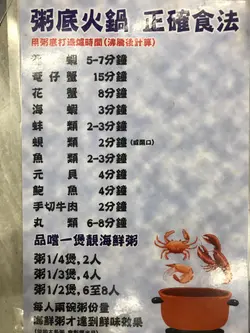 粥底火鍋 正確食法
照粥底打邊爐時間(沸騰後計算)
蝦 5-7分鐘
奄仔蟹 15分鐘
花蟹 8分鐘
海蝦 3分鐘
蚌類 2-3分鐘
蜆類 2分鐘(或開口)
魚類 2-3分鐘
元貝 4分鐘
鮑魚 4分鐘
手切牛肉 2分鐘
丸類 6-8分鐘
品嚐一煲靚海鮮粥
粥1/4煲, 2人
粥1/3煲, 4人
粥1/2煲, 6至8人
每人兩碗粥份量
海鮮粥才達到鮮味效果